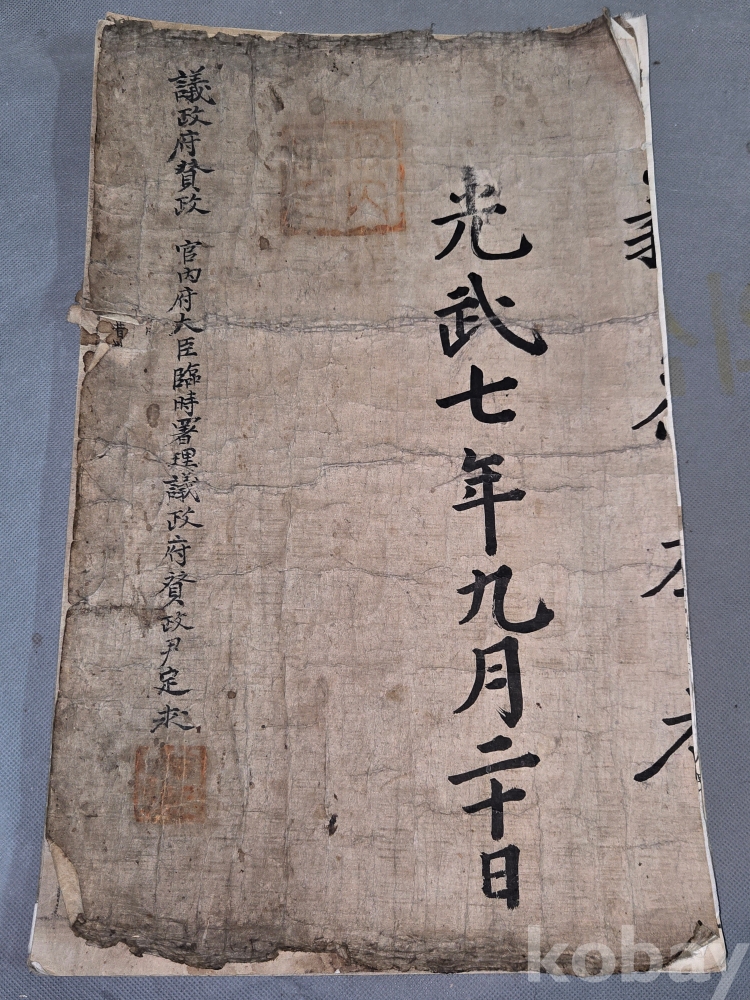 光武七年九月二十日
議政府賛政 官内府大臣臨時署理議政府賛政尹定求
kobay